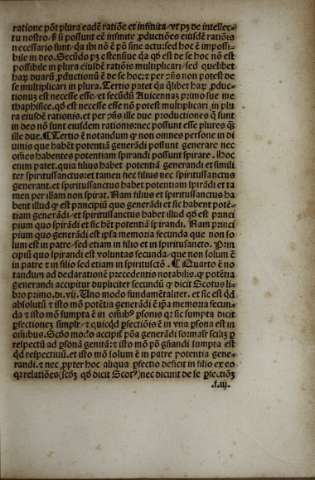 ratione põt plura eadẽ ratiõe et infinita: vt pʒ de intellec-
tu nostro. si possunt eẽ infinite ꝓductiões eiusdẽ ratiõis
necessario sunt. qꝛ ibi nõ ẽ põ sine actu: sed hoc ẽ impossi-
bile in deo. Secũdo pʒ extensiue qꝛ qð est de se hoc nõ est
possibile in plura eiusdẽ ratiõis multiplicari: sed quelibet
haꝝ duarũ ꝓductionũ ẽ de se hoc: et per ñs non potest de
se multiplicari in plura. Tertio patet qꝛ q̃libet haꝝ ꝓduc-
tionũ est necesse esse: et secũdũ Auicennaʒ primo sue me-
thaphisice. qð est necesse esse nõ potest multiplicari in plu
ra eiusdẽ rationis. et per ñs ille due productiones q̃ sunt
in deo nõ sunt eiusdem rationis: nec possunt esse plures q̃ʒ
ille due. Tertio ẽ notandum ꝙ non omnes persone in di
uinis que habẽt potentiã generãdi possunt generare nec
oẽs habentes potentiam spirandi possunt spirare. Hoc
enim patet. quia filius habet potentiã generandi et simili
ter spiritussanctus: et tamen nec filius nec spiritussanctus
generant. et spiritussanctus habet potentiam spirãdi et ta
men per illam non spirat. Nam filius et spiritussanctus ha
bent illud qð est principiũ quo generandi et sic habent potẽ-
tiam generãdi. et spiritussanctus habet illud qð est princi
pium quo spirãdi et sic hẽt potentiã spirandi. Nam princi
pium quo generandi est ipsa memoria secunda que non so
lum est in patre: sed etiam in filio et in spiritusancto. Prin
cipiũ quo spirandi est voluntas secunda. que non solum est
in patre et in filio sed etiam in spiritusctõ. Quarto ẽ no
tandum ad declarationẽ precedentis notabilis. ꝙ potẽtia
generandi accipitur dupliciter secundũ ꝙ dicit Scotus li
bro primo. di. vij. Uno modo fundamẽtaliter. et sic est qð
absolutũ et isto mõ potẽtia generãdi ẽ ipsa memoria secun-
da: et isto mõ sumpta ẽ in oĩbꝰ psonis qꝛ sic sumpta dicit
pfectionez simplr̃: et quicqð pfectiõis ẽ in vna psona est in
oĩbus. Scðo modo accipit põa generãdi formalr̃ scilicʒ ꝓ
respectũ ad psonã genitã: et isto mõ põ gñandi sumpta est
qð respectiuũ. et isto mõ solum ẽ in patre potentia gene-
randi. et nec ꝓpter hoc aliqua pfectio deficit in filio ex eo
ꝙ relatiões (scðʒ qð dicit Scotꝰ) nec dicunt de se pfectiõʒ